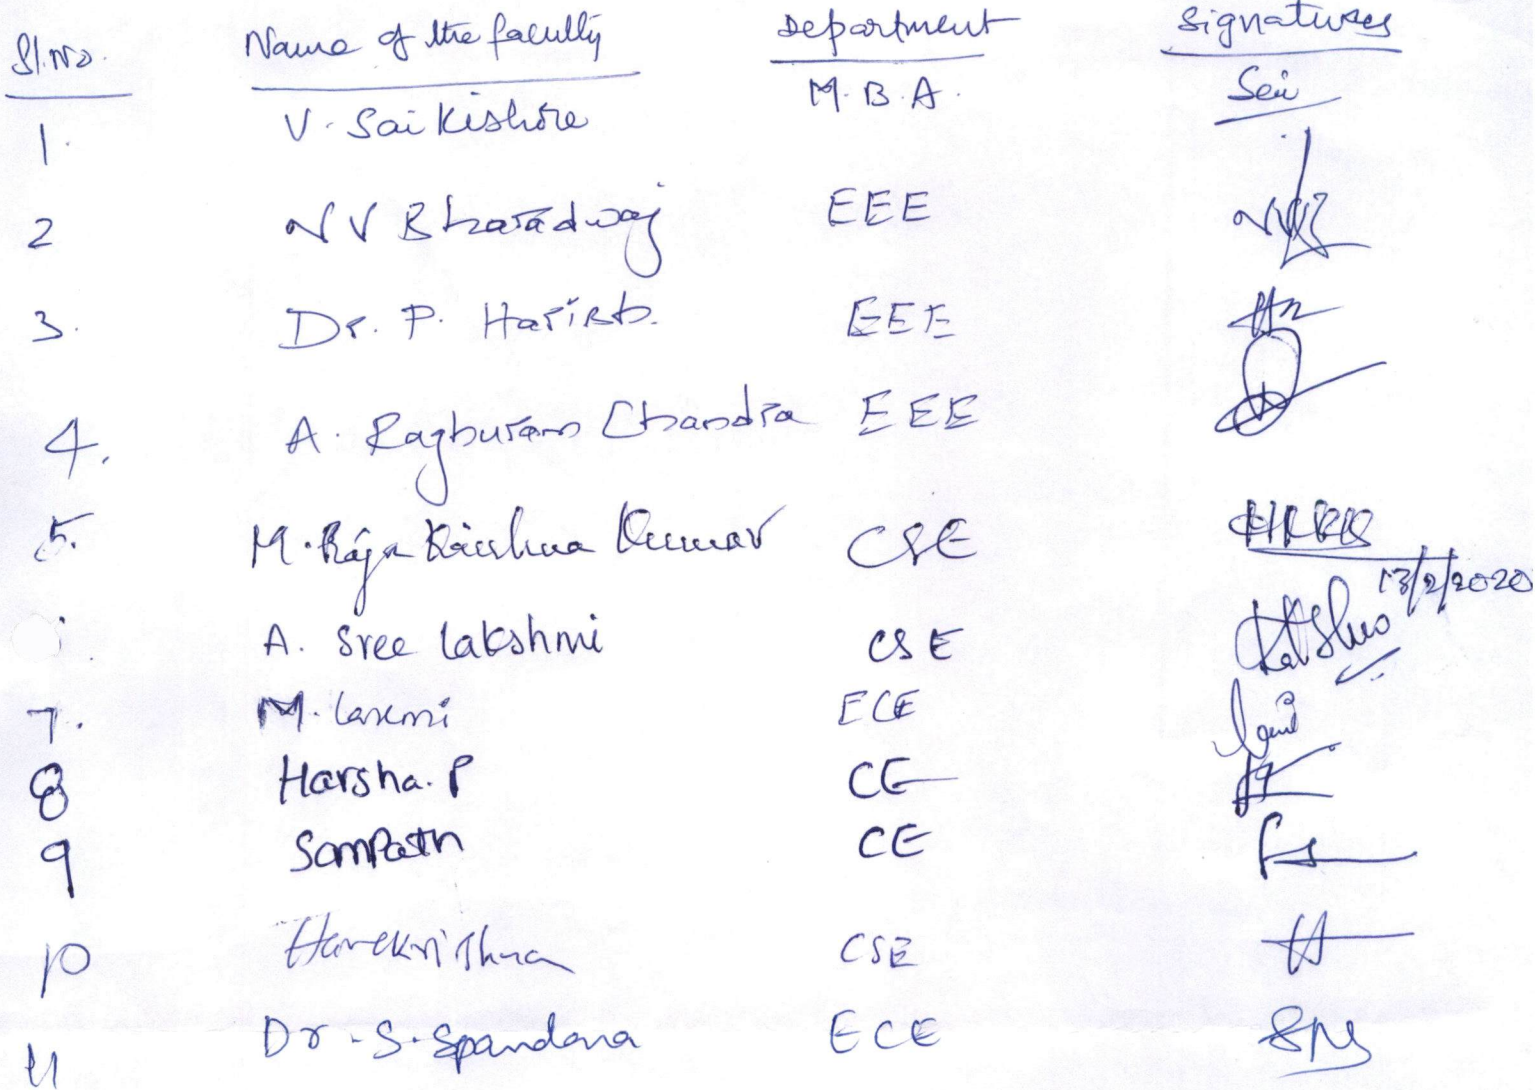 Sl.No. Name of the faculty Department Signatures
1. V. Sai Kishore M.B.A. Sai
2 N V Bharadwaj EEE
3. Dr. P. Harish. EEE
4. A. Raghuram Chandra EEE
5. M. Raja Krishna Kumar CSE
13/2/2020
A. Sree Lakshmi CSE
7. M. Laxmi ECE
8 Harsha. P CE
9 Sampath CE
10 Harekrishna CSE
11 Dr. S. Spandana ECE